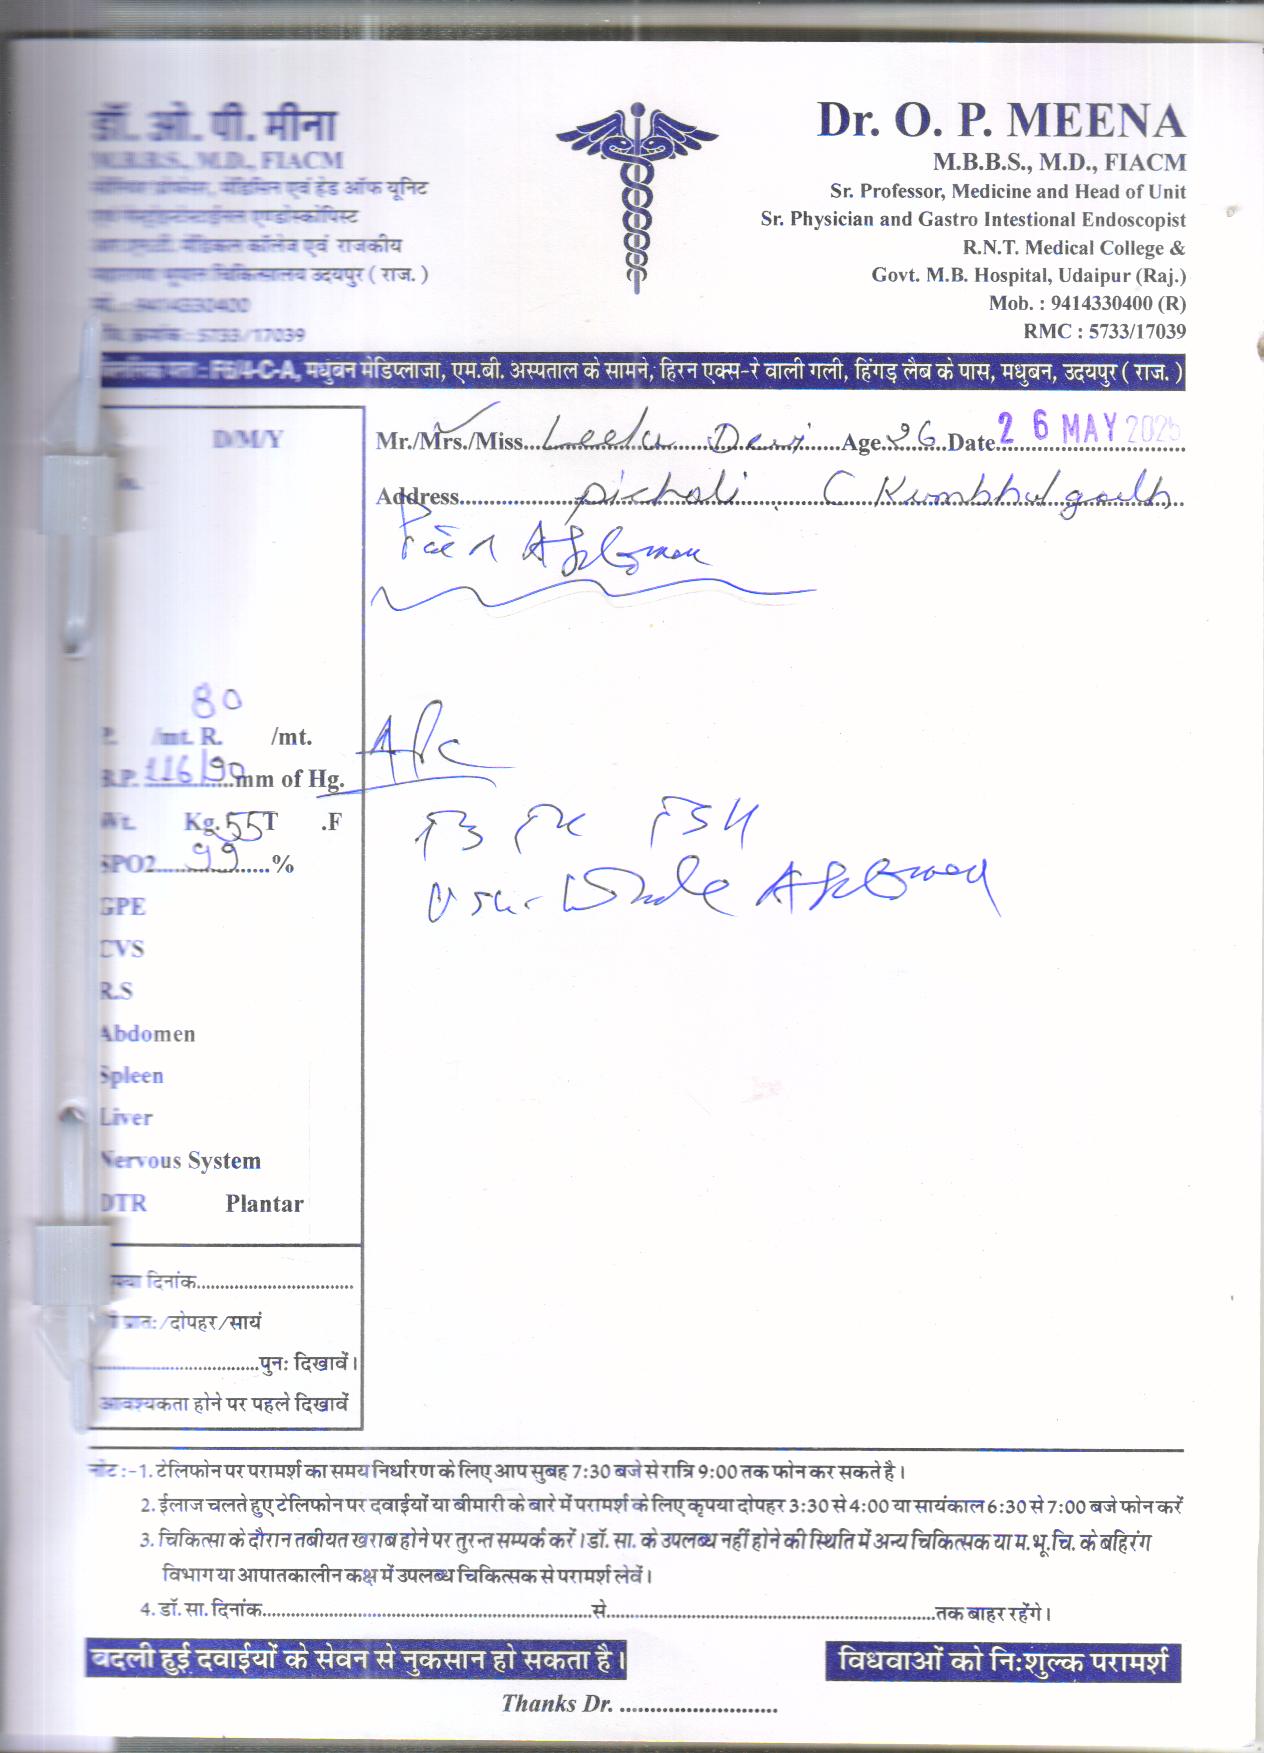 डॉ. ओ. पी. मीना
M.B.B.S., M.D., FIACM
प्रोफेसर, मेडिसिन एवं हेड ऑफ यूनिट
एण्डोस्कोपिस्ट
मेडिकल कॉलेज एवं राजकीय
महाराणा भूपाल चिकित्सालय उदयपुर ( राज. )
9414330400
5733/17039
Dr. O. P. MEENA
M.B.B.S., M.D., FIACM
Sr. Professor, Medicine and Head of Unit
Sr. Physician and Gastro Intestional Endoscopist
R.N.T. Medical College &
Govt. M.B. Hospital, Udaipur (Raj.)
Mob. : 9414330400 (R)
RMC : 5733/17039
F6/4-C-A, मधुबन मेडिप्लाजा, एम.बी. अस्पताल के सामने, हिरन एक्स-रे वाली गली, हिंगड़ लैब के पास, मधुबन, उदयपुर ( राज. )
D/M/Y
Mr./Mrs./Miss... Leela Devi ...Age 26 Date 26 MAY 2025
Address... pichali C Kumbhulgarh
Pain Abdomen
80
P. /mt. R. /mt.
B.P. 116/90 mm of Hg.
Wt. Kg. 55 T .F
SPO2 99 %
T3 T4 TSH
Whole Abdomen
GPE
CVS
R.S
Abdomen
Spleen
Liver
Nervous System
DTR Plantar
दिनांक
प्रातः/दोपहर/सायं
पुनः दिखावें।
आवश्यकता होने पर पहले दिखावें
नोट :-1. टेलिफोन पर परामर्श का समय निर्धारण के लिए आप सुबह 7:30 बजे से रात्रि 9:00 तक फोन कर सकते है।
2. ईलाज चलते हुए टेलिफोन पर दवाईयों या बीमारी के बारे में परामर्श के लिए कृपया दोपहर 3:30 से 4:00 या सायंकाल 6:30 से 7:00 बजे फोन करें
3. चिकित्सा के दौरान तबीयत खराब होने पर तुरन्त सम्पर्क करें। डॉ. सा. के उपलब्ध नहीं होने की स्थिति में अन्य चिकित्सक या म. भू. चि. के बहिरंग
विभाग या आपातकालीन कक्ष में उपलब्ध चिकित्सक से परामर्श लेवें।
4. डॉ. सा. दिनांक...से...तक बाहर रहेंगे।
बदली हुई दवाईयों के सेवन से नुकसान हो सकता है।
विधवाओं को निःशुल्क परामर्श
Thanks Dr. ..........................